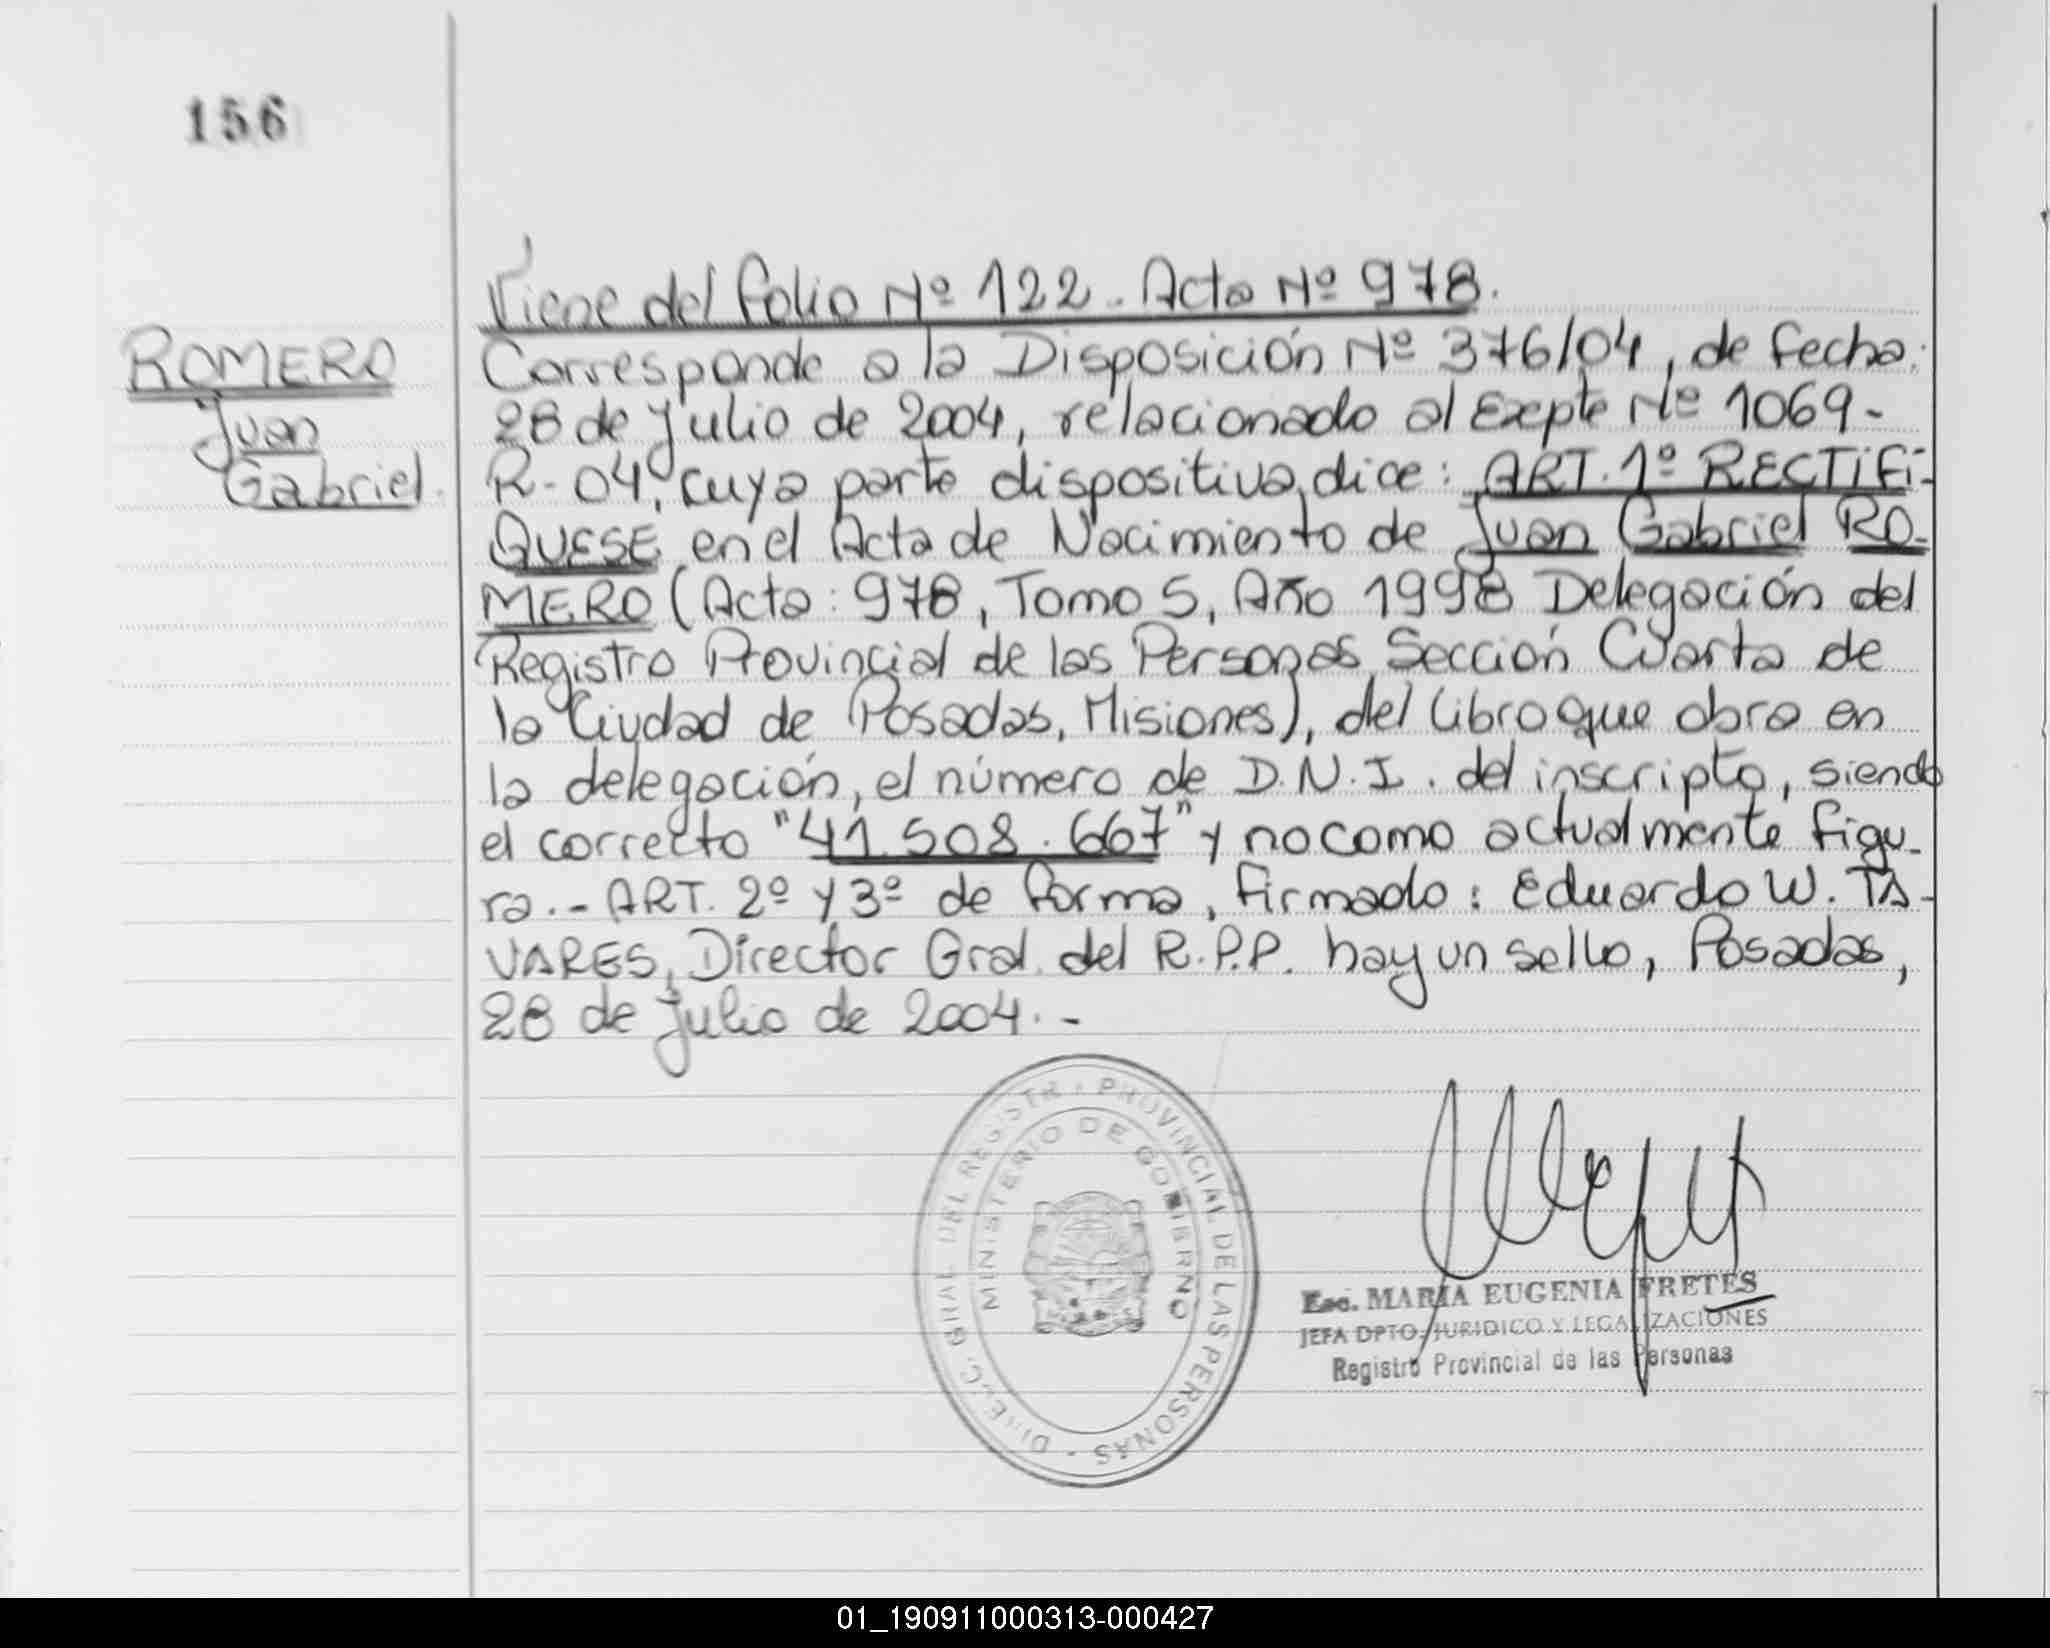 156
Viene del folio Nº 122. Acta Nº 978.
ROMERO
Juan
Gabriel.
Corresponde a la Disposición Nº 376/04, de fecha:
28 de julio de 2004, relacionado al Expte Nº 1069-
R-04, cuya parte dispositiva dice: ART. 1º RECTIFI-
QUESE en el Acta de Nacimiento de Juan Gabriel RO-
MERO (Acta: 978, Tomo 5, Año 1998 Delegación del
Registro Provincial de las Personas Sección Cuarta de
la Ciudad de Posadas, Misiones), del libro que obra en
la delegación, el número de D.N.I. del inscripto, siendo
el correcto "41.508.667" y no como actualmente figu-
ra.- ART. 2º y 3º de forma, Firmado: Eduardo W. TA-
VARES, Director Gral. del R.P.P. hay un sello, Posadas,
28 de julio de 2004.-
DIREC. GRAL DEL REGISTRO PROVINCIAL DE LAS PERSONAS -
MINISTERIO DE GOBIERNO
Esc. MARIA EUGENIA FRETES
JEFA DPTO. JURIDICO Y LEGALIZACIONES
Registro Provincial de las Personas
01_190911000313-000427